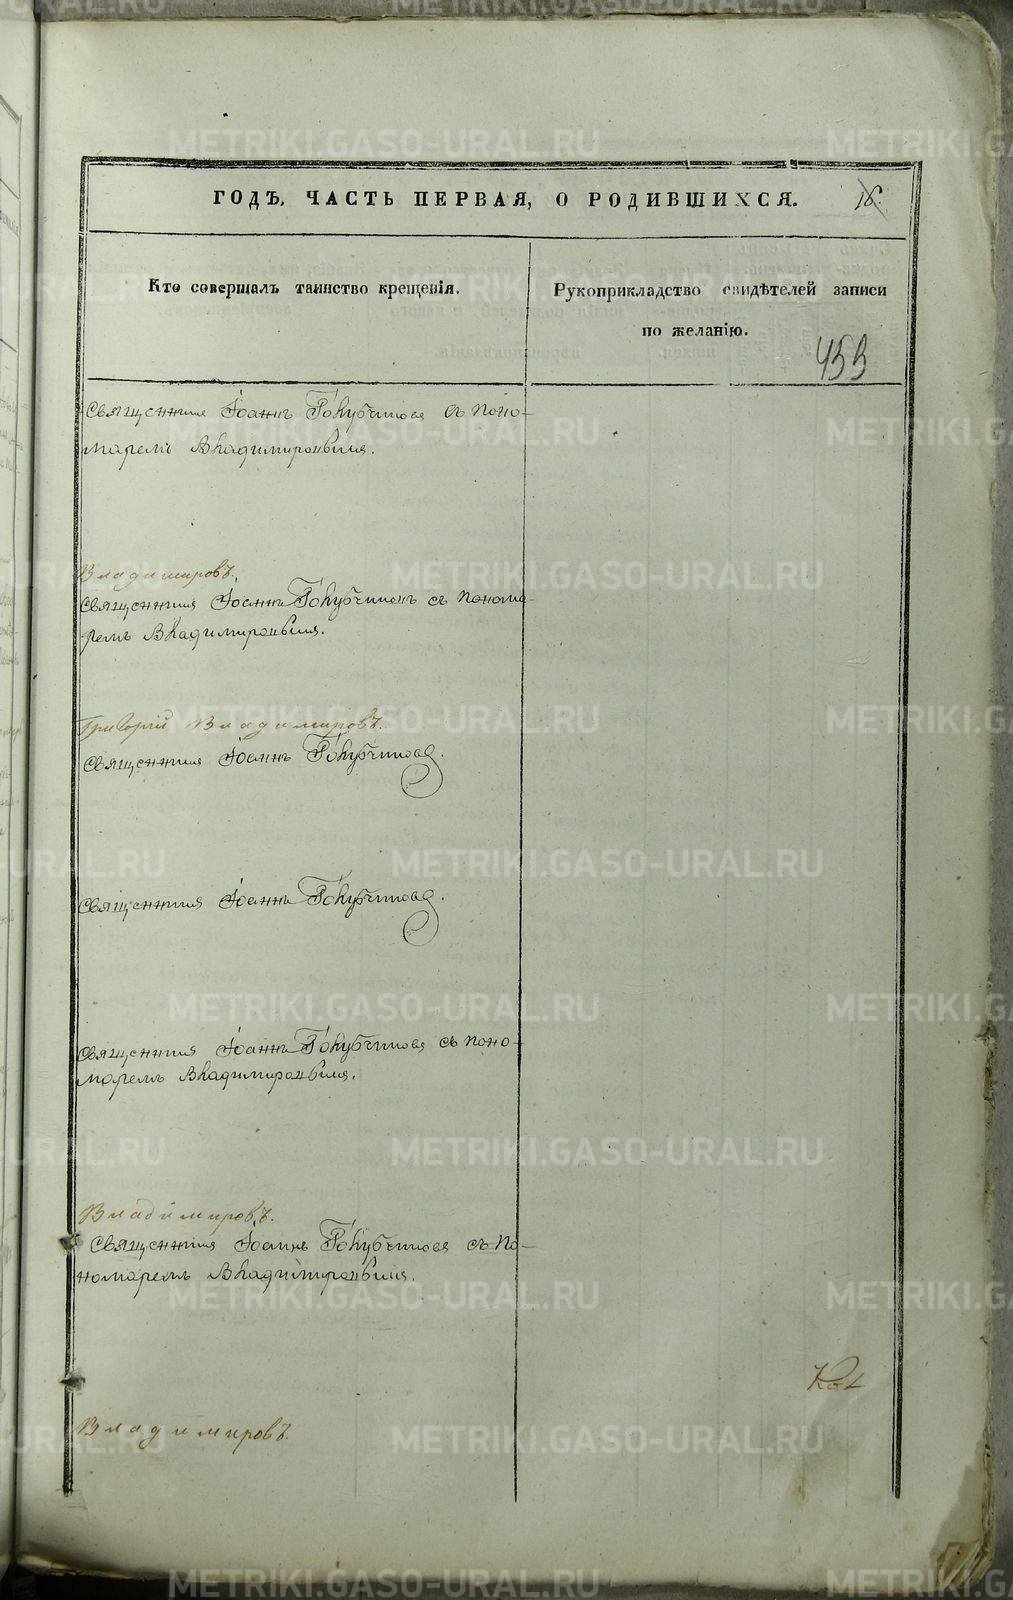 ГОДЪ. ЧАСТЬ ПЕРВАЯ, О РОДИВШИХСЯ. 18.
Кто совершалъ таинство крещенія.
Рукоприкладство свидѣтелей записи
по желанію.
453
Священник Іоаннъ Голубчиков съ Поно-
марем Владимировым.
Владимировъ.
Священник Іоаннъ Голубчиков съ Понома-
рем Владимировым.
Григорій Владимировъ.
Священник Іоаннъ Голубчиков.
Священник Іоаннъ Голубчиков.
Священник Іоаннъ Голубчиков съ Поно-
марем Владимировым.
Владимировъ.
Священник Іоаннъ Голубчиков съ По-
номарем Владимировым.
Владимировъ.
METRIKI.GASO-URAL.RU